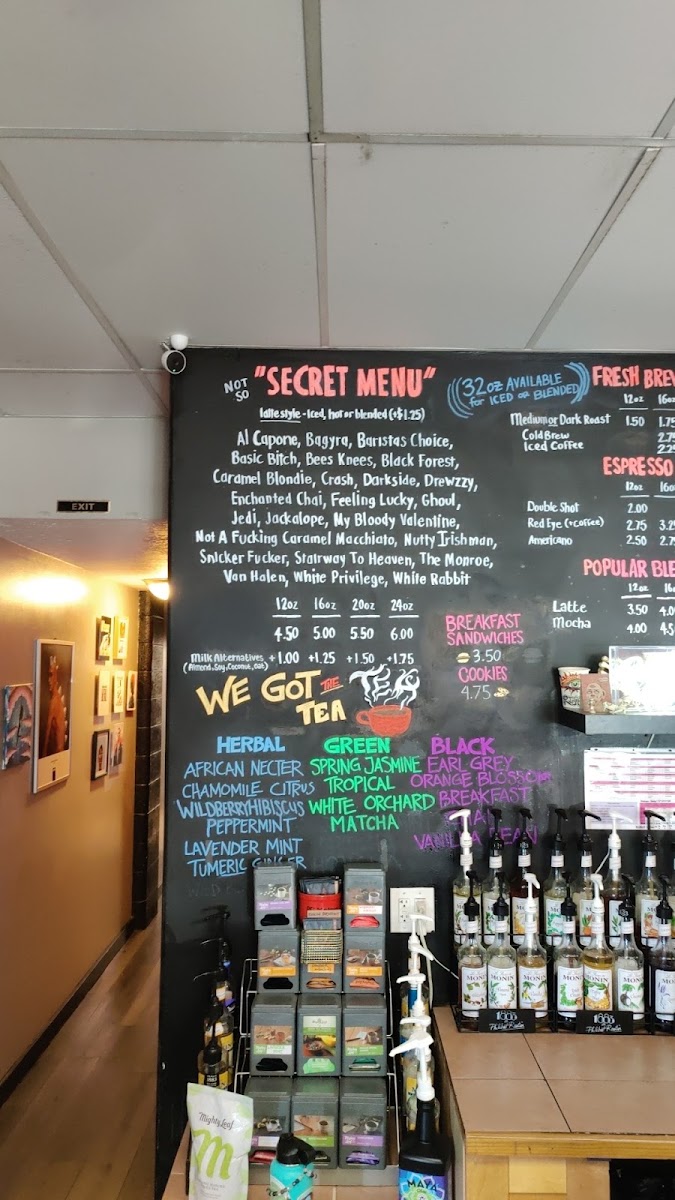 NOT SO "SECRET MENU"
latte style - Iced, hot or blended (+$1.25)
Al Capone, Bagyra, Baristas Choice,
Basic Bitch, Bees Knees, Black Forest,
Caramel Blondie, Crash, Darkside, Drewzzy,
Enchanted Chai, Feeling Lucky, Ghoul,
Jedi, Jackalope, My Bloody Valentine,
Not A Fucking Caramel Macchiato, Nutty Irishman,
Snicker Fucker, Stairway To Heaven, The Monroe,
Van Halen, White Privilege, White Rabbit
12oz 16oz 20oz 24oz
4.50 5.00 5.50 6.00
Milk Alternatives +1.00 +1.25 +1.50 +1.75
(Almond, Soy, Coconut, Oat)
32oz AVAILABLE
for ICED OR BLENDED
FRESH BREW
12oz 16oz
Medium or Dark Roast 1.50 1.75
Cold Brew 2.75
Iced Coffee 2.25
ESPRESSO
12oz 16oz
Double Shot 2.00
Red Eye (+coffee) 2.75 3.25
Americano 2.50 2.75
POPULAR BLE
12oz 16oz
Latte 3.50 4.00
Mocha 4.00 4.5
BREAKFAST
SANDWICHES
3.50
COOKIES
4.75
WE GOT THE
TEA
TEAS
HERBAL
AFRICAN NECTER
CHAMOMILE CITRUS
WILDBERRY HIBISCUS
PEPPERMINT
LAVENDER MINT
TUMERIC GINGER
GREEN
SPRING JASMINE
TROPICAL
WHITE ORCHARD
MATCHA
BLACK
EARL GREY
ORANGE BLOSSOM
BREAKFAST
VANILLA BEAN
EXIT
MONIN
MONIN
MONIN
MONIN
MONIN
MONIN
1883
1883
Mighty Leaf
M
MAYA